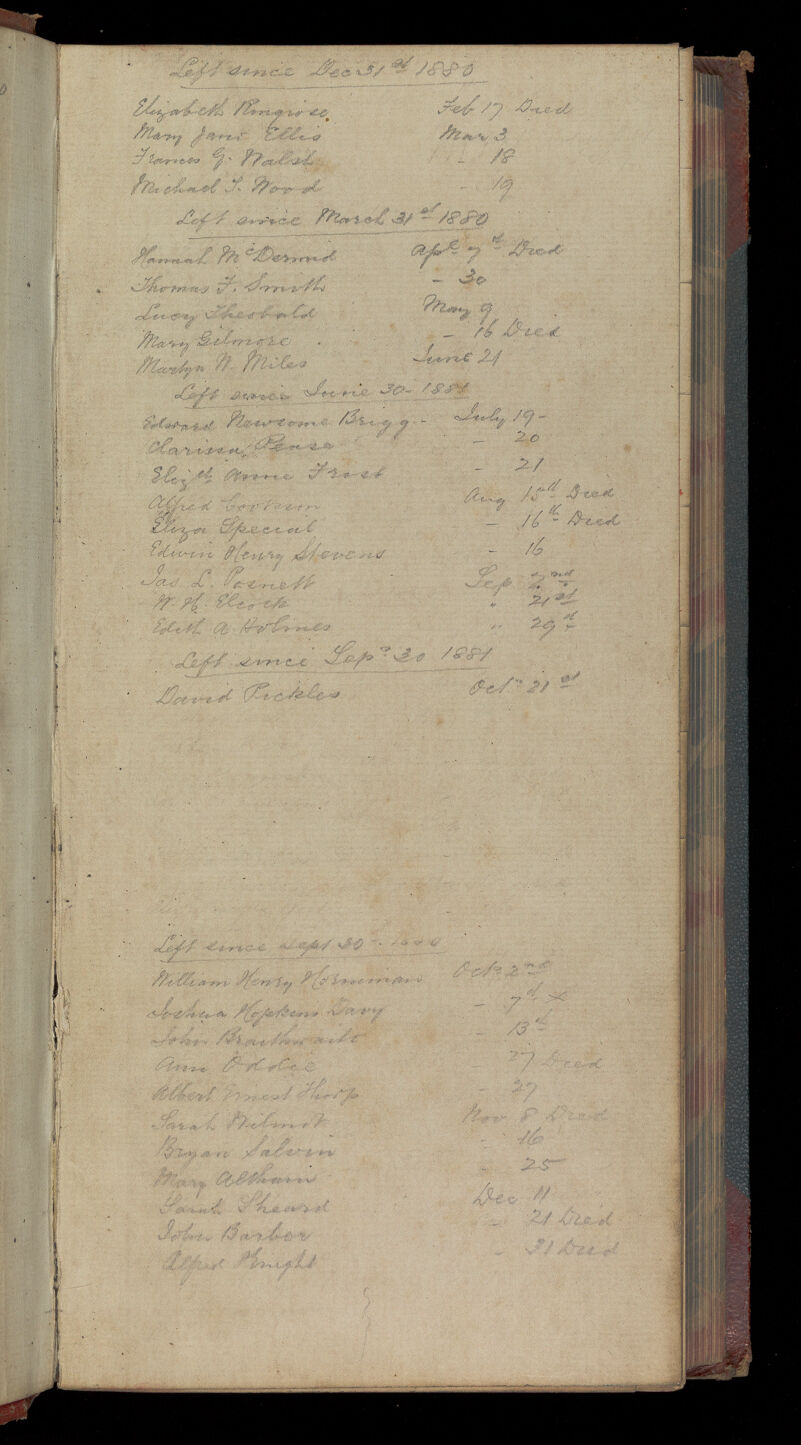 Left since Dec 31st 1880
Elizabeth Ringrose Feb 17 Died
Mary Jane Ellis Mar 3
Frances G. Walsh - 18
Michael S. Wood - 19
Left since March 31st 1880
Hannah McDermid Apl 7th Died
Thomas F. Smith - 30
Lucy Theobald May 9
Mary Gilmore - 16 Died
Martyn W. Miles June 21
Left since June 30 - 1881
Edward Newsome Brigg - July 19 -
Clarissa Pease - 20
Elizth Anne Frost - 21
Alfred Cookson Aug 15th Died
Eliza Special - 16th Died
Edwin Henry Stevens - 16
Jas L. Posnett Sep 2nd
W. H. Elcock " 21st
Edith A. Holmes " 29th
Left since Sep 30 1881
David Pickles Oct 21st
Left since Sept 30 - 1880
William Henry Horniman Oct 2nd
Joshua Hopkins Davy - 7th x
John Braithwaite - 13th
Ann Oddie - 27 Died
Albert Ernest Thorp - 27
Sarah Wilmot Nov 8 Died
Bryan Salvin - 16
Mary Altham - 25
Sarah Sheard Dec 11
John Barber - 21 Died
Alfred Knight - 31 Died